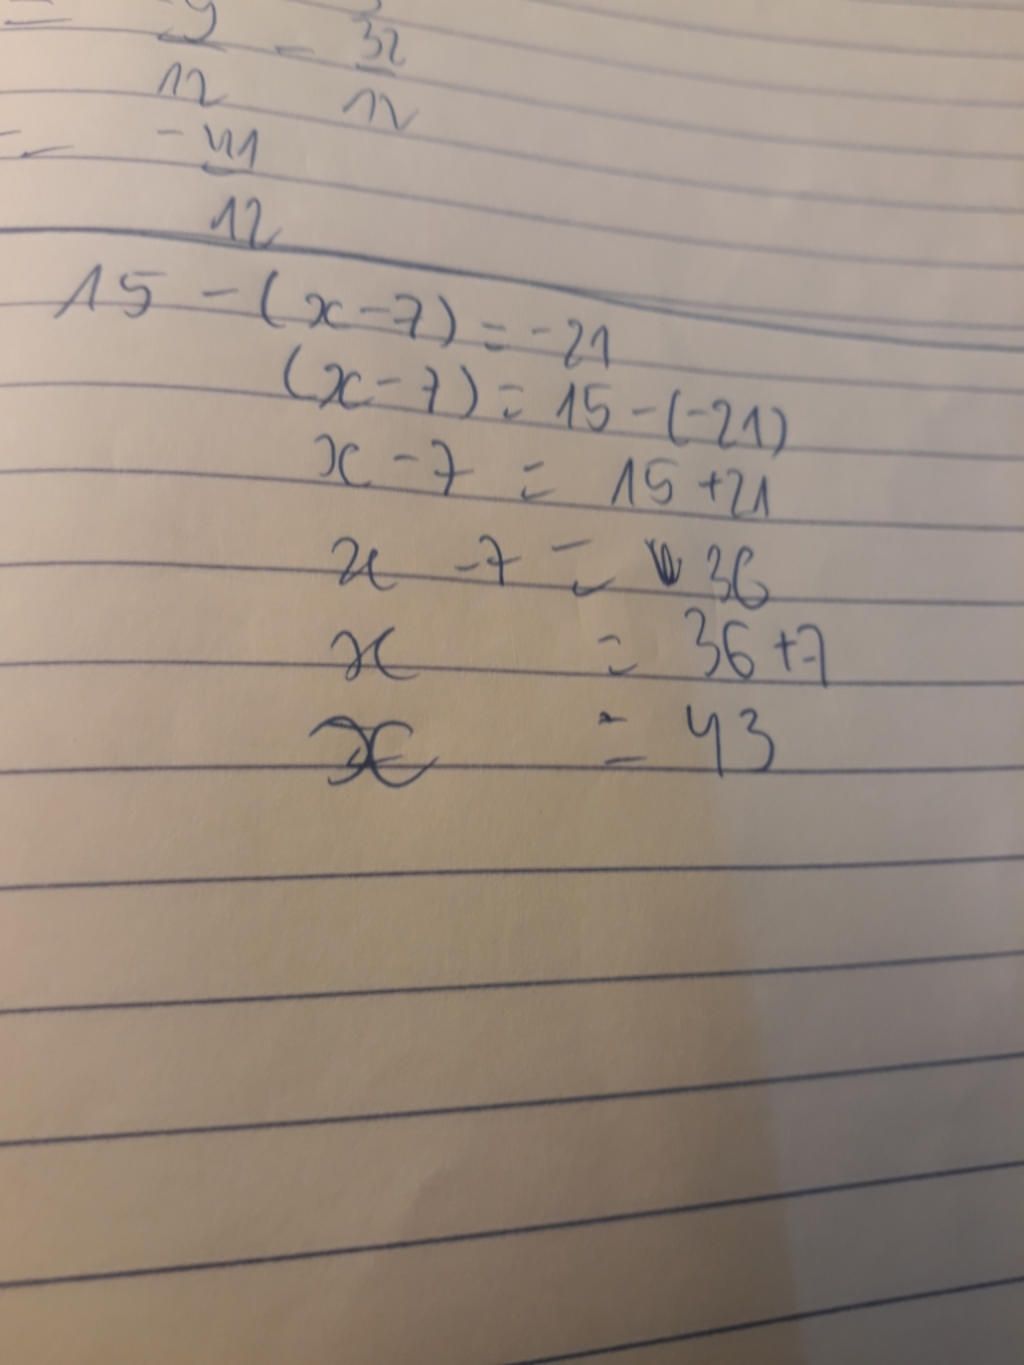 = -9/12 - 32/12
= -41/12
15 - (x - 7) = -21
(x - 7) = 15 - (-21)
x - 7 = 15 + 21
x - 7 = 36
x = 36 + 7
x = 43